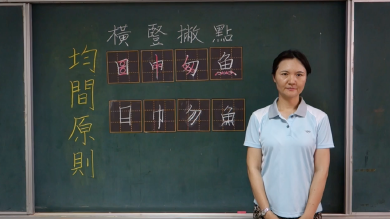 均間原則
橫 豎 撇 點
日 中 勿 魚
日 巾 勿 魚